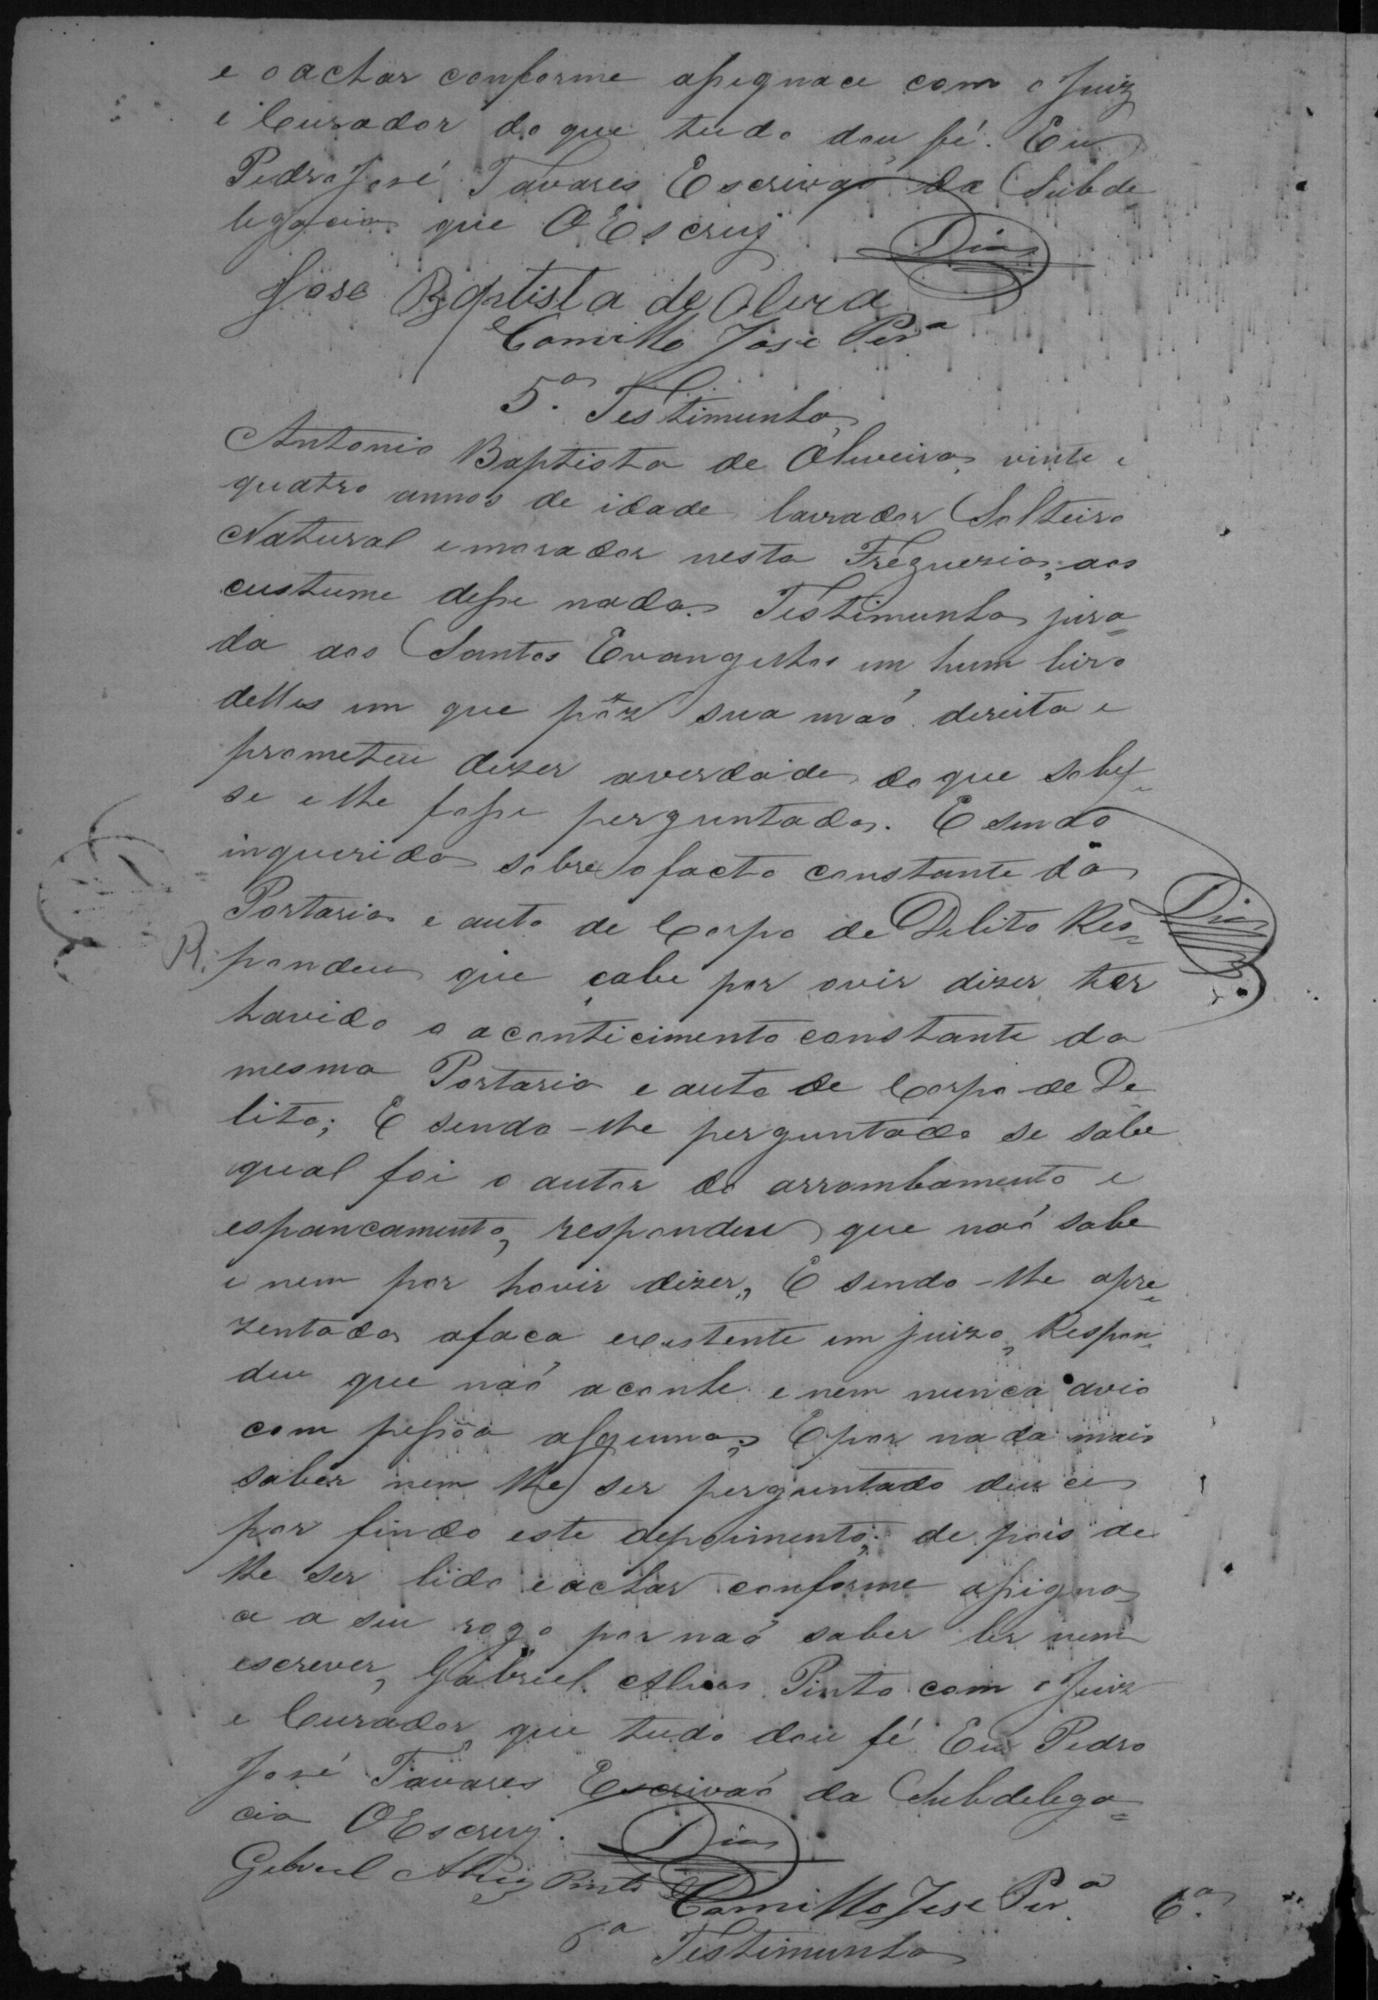 e o achar conforme assignace com o Juiz
e Curador do que tudo dou fé. Eu
Pedro José Tavares Escrivaõ da Subde=
legacia que O Escrivj
Dias
Jose Baptista de Olivra
Camillo José Perª
5ª Testimunha
Antonio Baptista de Oliveira, vinte e
quatro annos de idade lavrador Solteiro
Natural e morador nesta Freguezia; aos
custume desse nada. Testimunha jura=
da aos Santos Evangelhos em hum livro
delles em que pôz sua maõ direita e
prometeu dizer averdade do que sobes=
se e lhe fosse perguntado. E sendo
inquerido sobre o facto constante da
Portaria e auto de Corpo de Delito Res=
Dias
R. pondeu que çabe por ovir dizer ter
havido o aconticimento constante da
mesma Portaria e auto de Corpo de De=
lito; E sendo-lhe perguntado se sabe
qual foi o autor do arrombamento e
espancamento, respondeu que naõ sabe
e nem por hovir dizer, E sendo-lhe apre=
zentada afaca existente em juizo, Respon=
deu que naõ aconhe e nem nunca avio
com pessôa alguma; E por nada mais
saber nem lhe ser perguntado deu ce
por findo este depoimento; de pois de
lhe ser lido e achar conforme assigna
ce a seu rogo por naõ saber ler nem
escrever, Gabriel Alves Pinto com o Juiz
e Curador que tudo dou fé Eu Pedro
José Tavares Escrivaõ da Subdelega=
cia O Escrivj.
Dias
Gabriel Alves Pinto
Camillo Jose Perª
6ª
6ª Testimunha